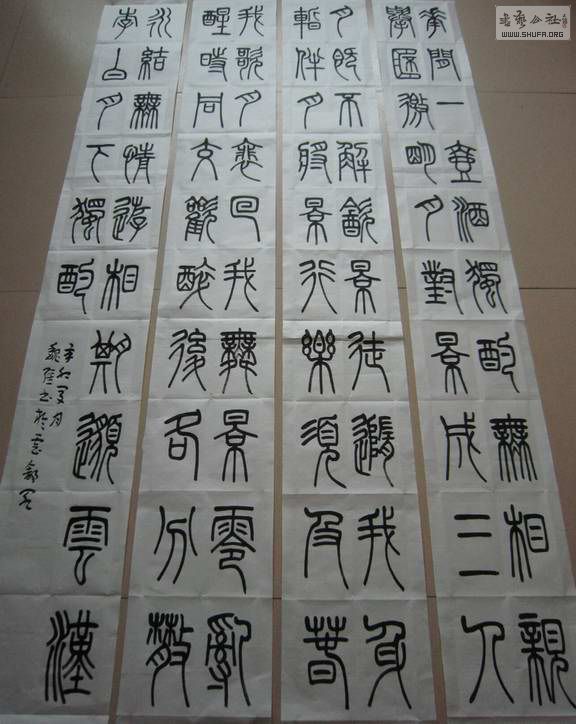 華間一壺酒獨酌無相親
舉杯邀明月對景成三人
月既不解飲景徒隨我身
暫伴月將景行樂須及春
我歌月裵回我舞景零亂
醒時同交歡醉後各分散
永結無情遊相期邈雲漢
李白月下獨酌
辛卯夏月
書藝公社
WWW.SHUFA.ORG